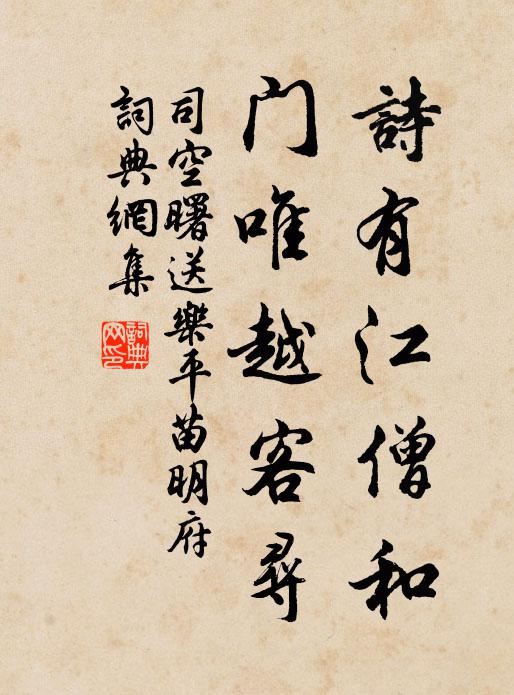 詩有江僧和
门唯越客尋
司空曙送樂平苗明府
詞典網集
詞典网印